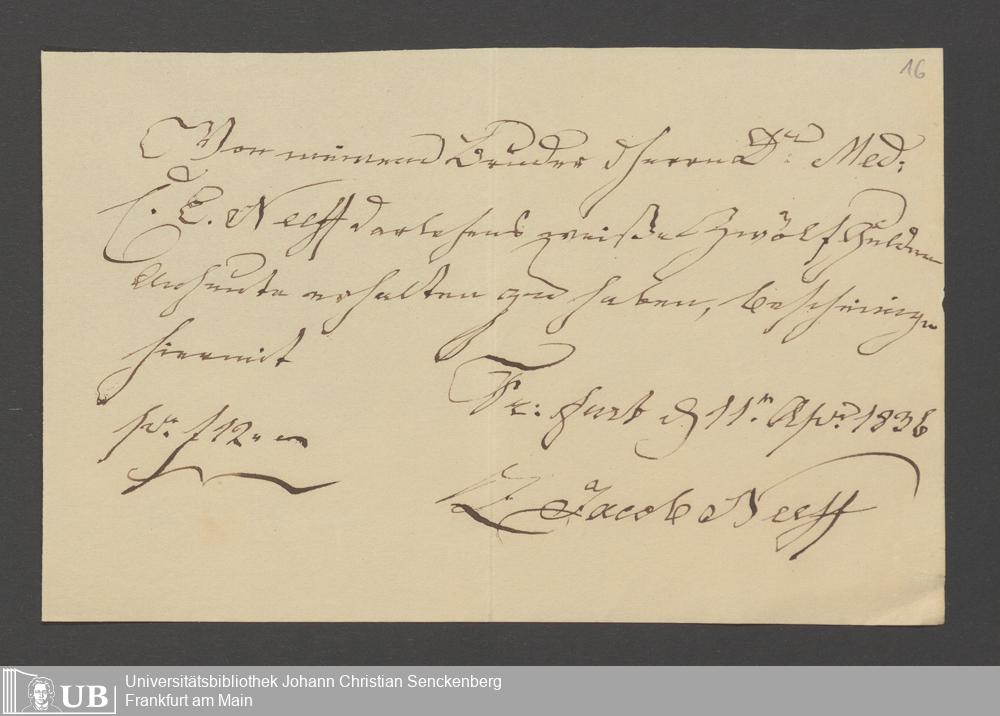 16
Von meinem Bruder Herrn Dr. Med:
C. E. Neeff darlehens weiße Zwölf Gulden
Anheute erhalten zu haben, bescheinige
hiermit
Fr: furt d 11n Apr. 1836
pr f 12 „ –
Jacob Neeff
UB
Universitätsbibliothek Johann Christian Senckenberg
Frankfurt am Main